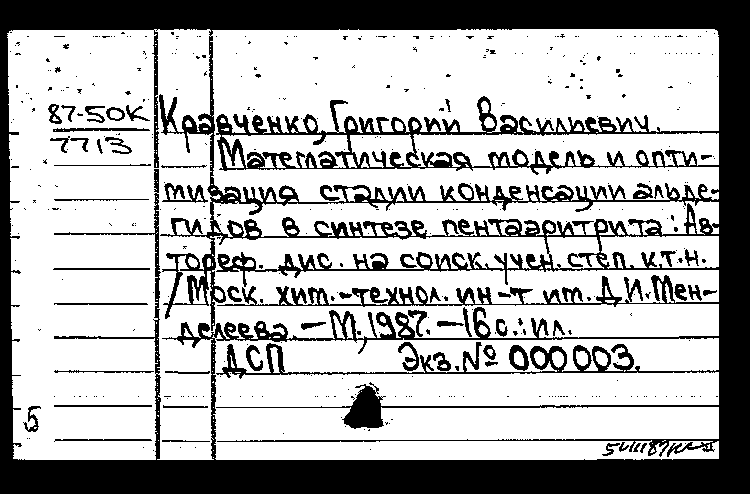 87-50К Кравченко, Григорий Василиевич.
7713
Математическая модель и опти-
мизация стадии конденсации альде-
гидов в синтезе пентаэритрита: Ав-
тореф. дис. на соиск. учен. степ. к.т.н.
/Моск. хим.-технол. ин-т им. Д.И.Мен-
делеева. — М., 1987. — 16 с.: ил.
ДСП Экз. № 000003.
5